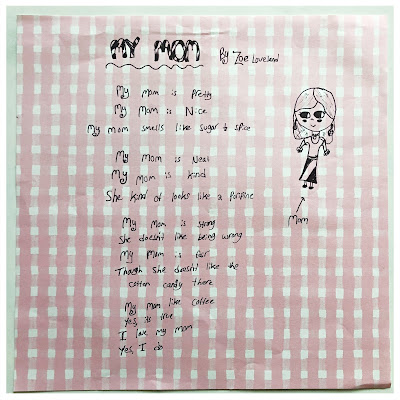 MY MOM
By Zoe Loveland
My mom is Pretty
My Mom is Nice
My mom smells like sugar & spice
My Mom is Neat
My Mom is kind
She kind of looks like a
My Mom is Strong
She doesn't like being wrong
My Mom is fair
Though She doesn't like the
cotton candy there
My mom like Coffee
Yes, its true
I love my mom
Yes, I do
Mom